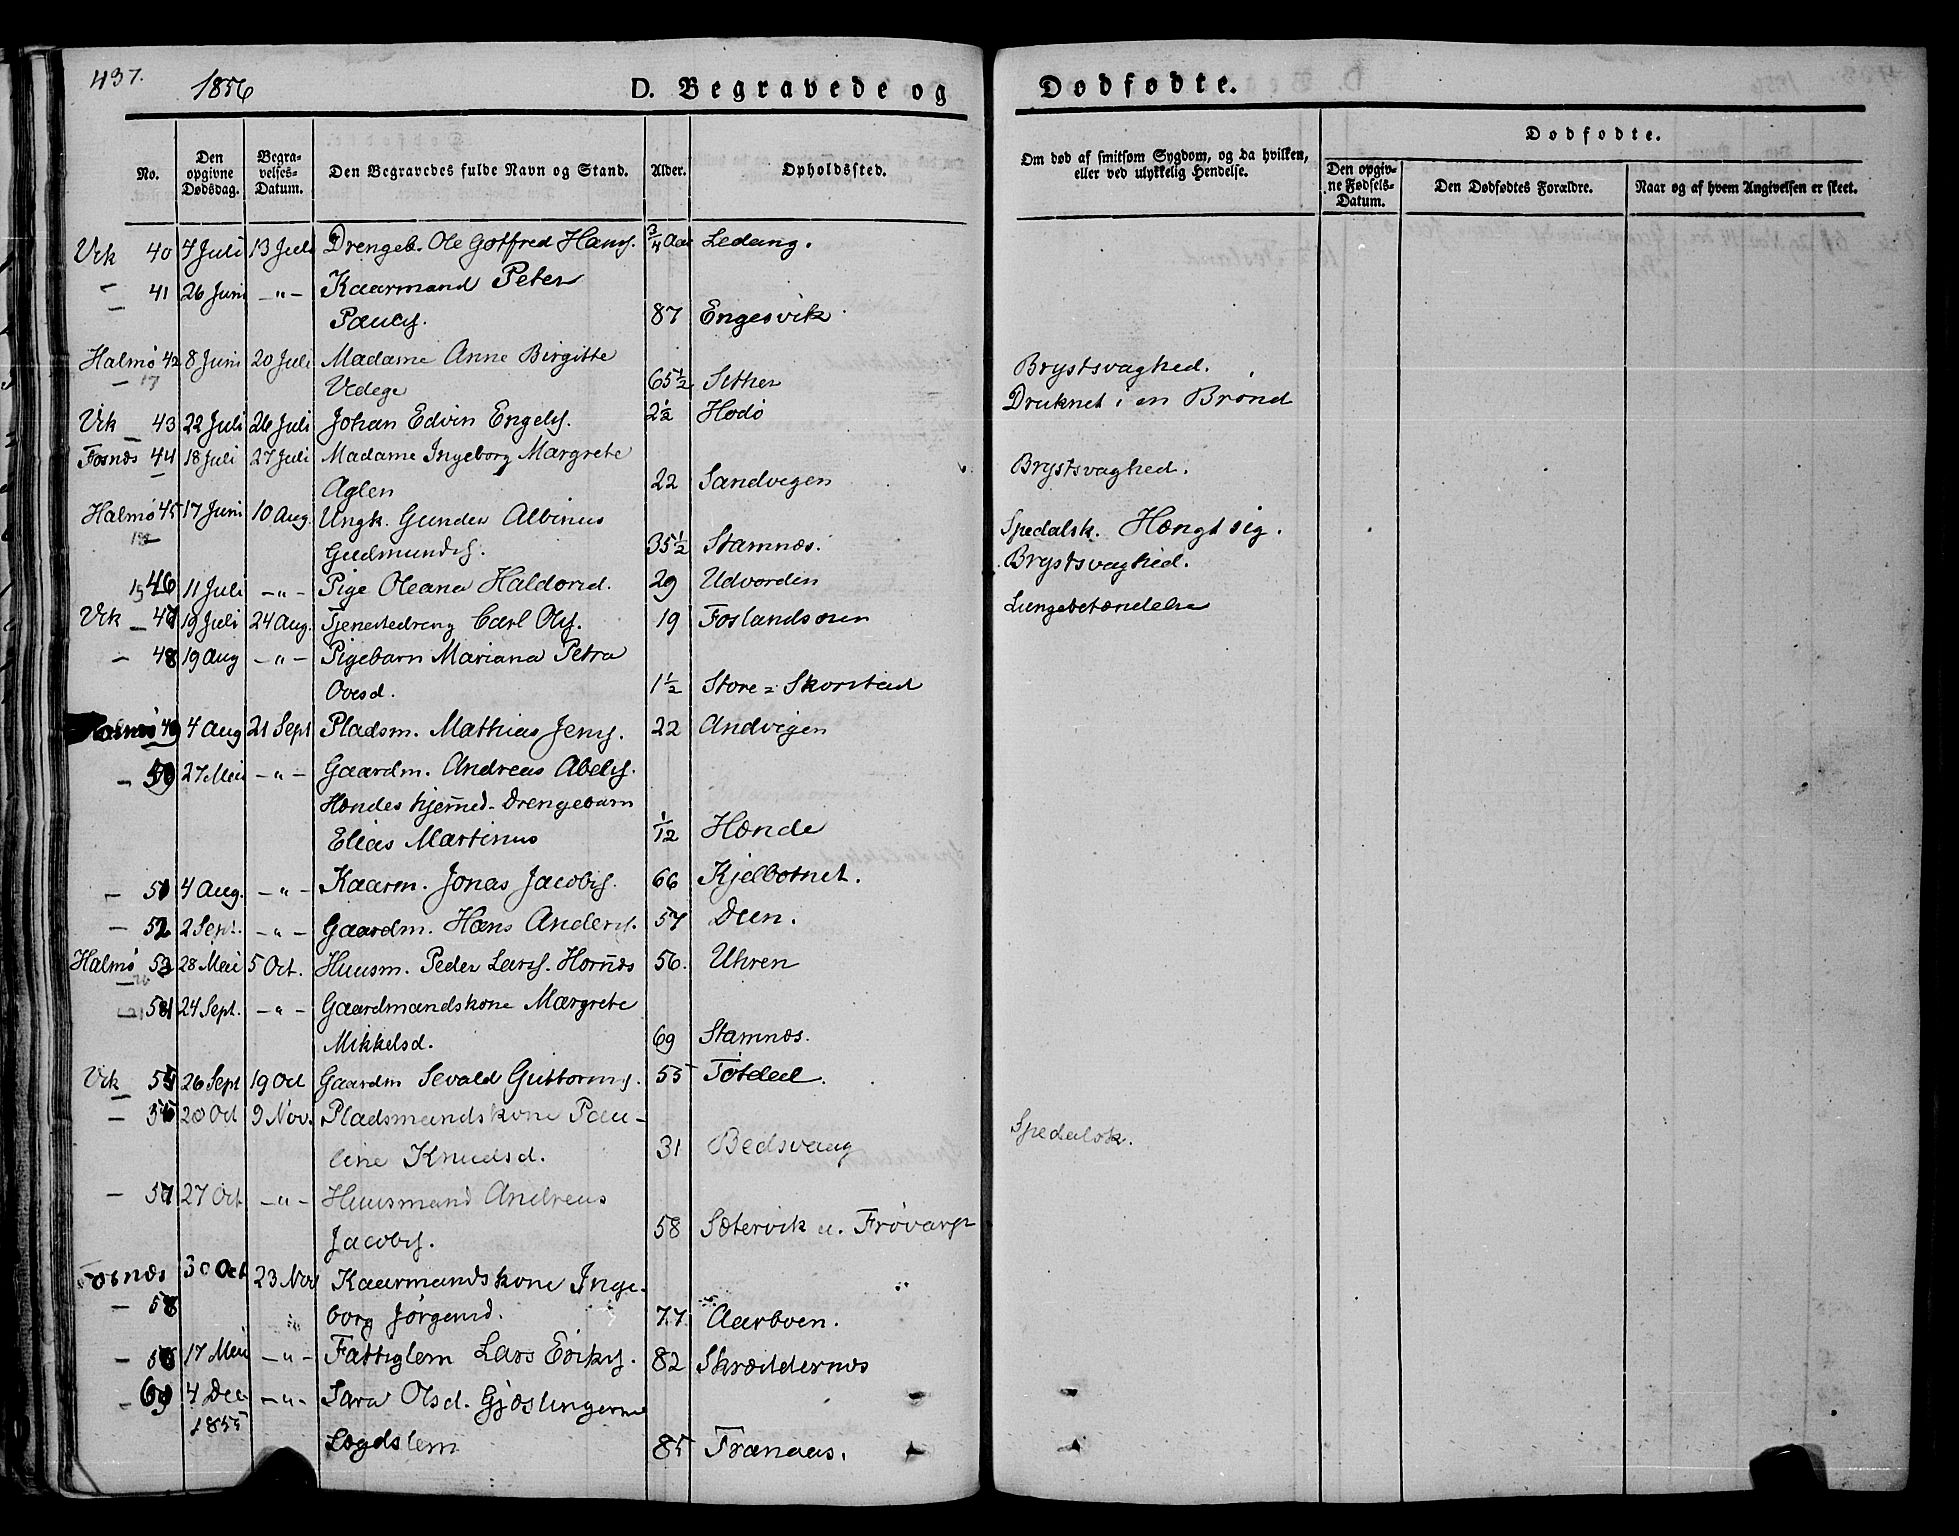 437.
1856
D. Begravede og Dødfødte.
No. Den opgivne Dødsdag. Begravelses-Datum. Den Begravedes fulde Navn og Stand. Alder. Opholdssted. Om død af smitsom Sygdom, og da hvilken, eller ved ulykkelig Hendelse. Dødfødte. Den opgivne Fødsels-Datum. Den Dødfødtes Forældre. Naar og af hvem Angivelsen er skeet.
Vik 40 4 Juli 13 Juli Drengeb. Ole Gotfred Hans. 3/4 Aar Ledang.
— 41 26 Juni —"— Kaarmand Peter
Pauls. 87 Engesvik.
Halmø 42 8 Juni 20 Juli Madame Anne Birgitte
— 17 Vedege 65 1/2 Sether Brystsvaghed.
Vik 43 22 Juli 26 Juli Johan Edvin Engels. 2 1/2 Hodø Druknet i en Brønd
Fosnæs 44 18 Juli 27 Juli Madame Ingeborg Margrete
Aglen 22 Sandvigen Brystsvaghed.
Halmø 45 17 Juni 10 Aug. Ungk. Gunder Albinus
Gudmunds. 35 1/2 Stamnæs. Spedalsk. Hængt sig.
46 11 Juli —"— Pige Oleana Haldorsd. 29 Udvorden Brystsvaghed.
Vik — 47 19 Juli 24 Aug. Tjenestedreng Carl Ols. 19 Foslandsosen Lungebetændelse
— 48 19 Aug —"— Pigebarn Mariana Petra
Ovesd. 1 1/2 Store-Skorstad
Halmø 49 4 Aug 21 Sept Pladsm. Mathias Jens. 22 Andvigen
— 50 27 Mai —"— Gaardm. Andreas Abels.
Handes hjemed. Drengebarn
Elias Martinus 1/12 Hande
— 51 4 Aug. —"— Kaarm. Jonas Jacobs. 66 Kjelbotnet.
— 52 2 Sept. —"— Gaardm. Hans Anders. 57 Duen.
Halmø 53 28 Mai 5 Oct. Huusm. Peder Lars. Hornæs 56. Uhren
54 24 Sept. —"— Gaardmandskone Margrete
Mikkelsd. 69 Stamnæs.
Vik 55 26 Sept 19 Oct Gaardm Sevald Guttorms. 55 Tøtdal.
— 56 20 Oct 9 Nov. Pladsmandskone Pau-
line Knudsd. 31 Bedsvaag Spedalsk.
— 57 27 Oct —"— Huusmand Andreas
Jacobs. 58 Sætervik u.
Fosnæs 30 Oct 23 Nov Kaarmandskone Inge-
— 58 borg Jørgensd. 77. Aarboen.
— 17 Mai —"— Fattiglem Lars Eriks. 82 Skræddernæs
— 60 4 Dec —"— Sara Olsd. Gjæslingerne
1855 Lægdslem 85 Franaas.